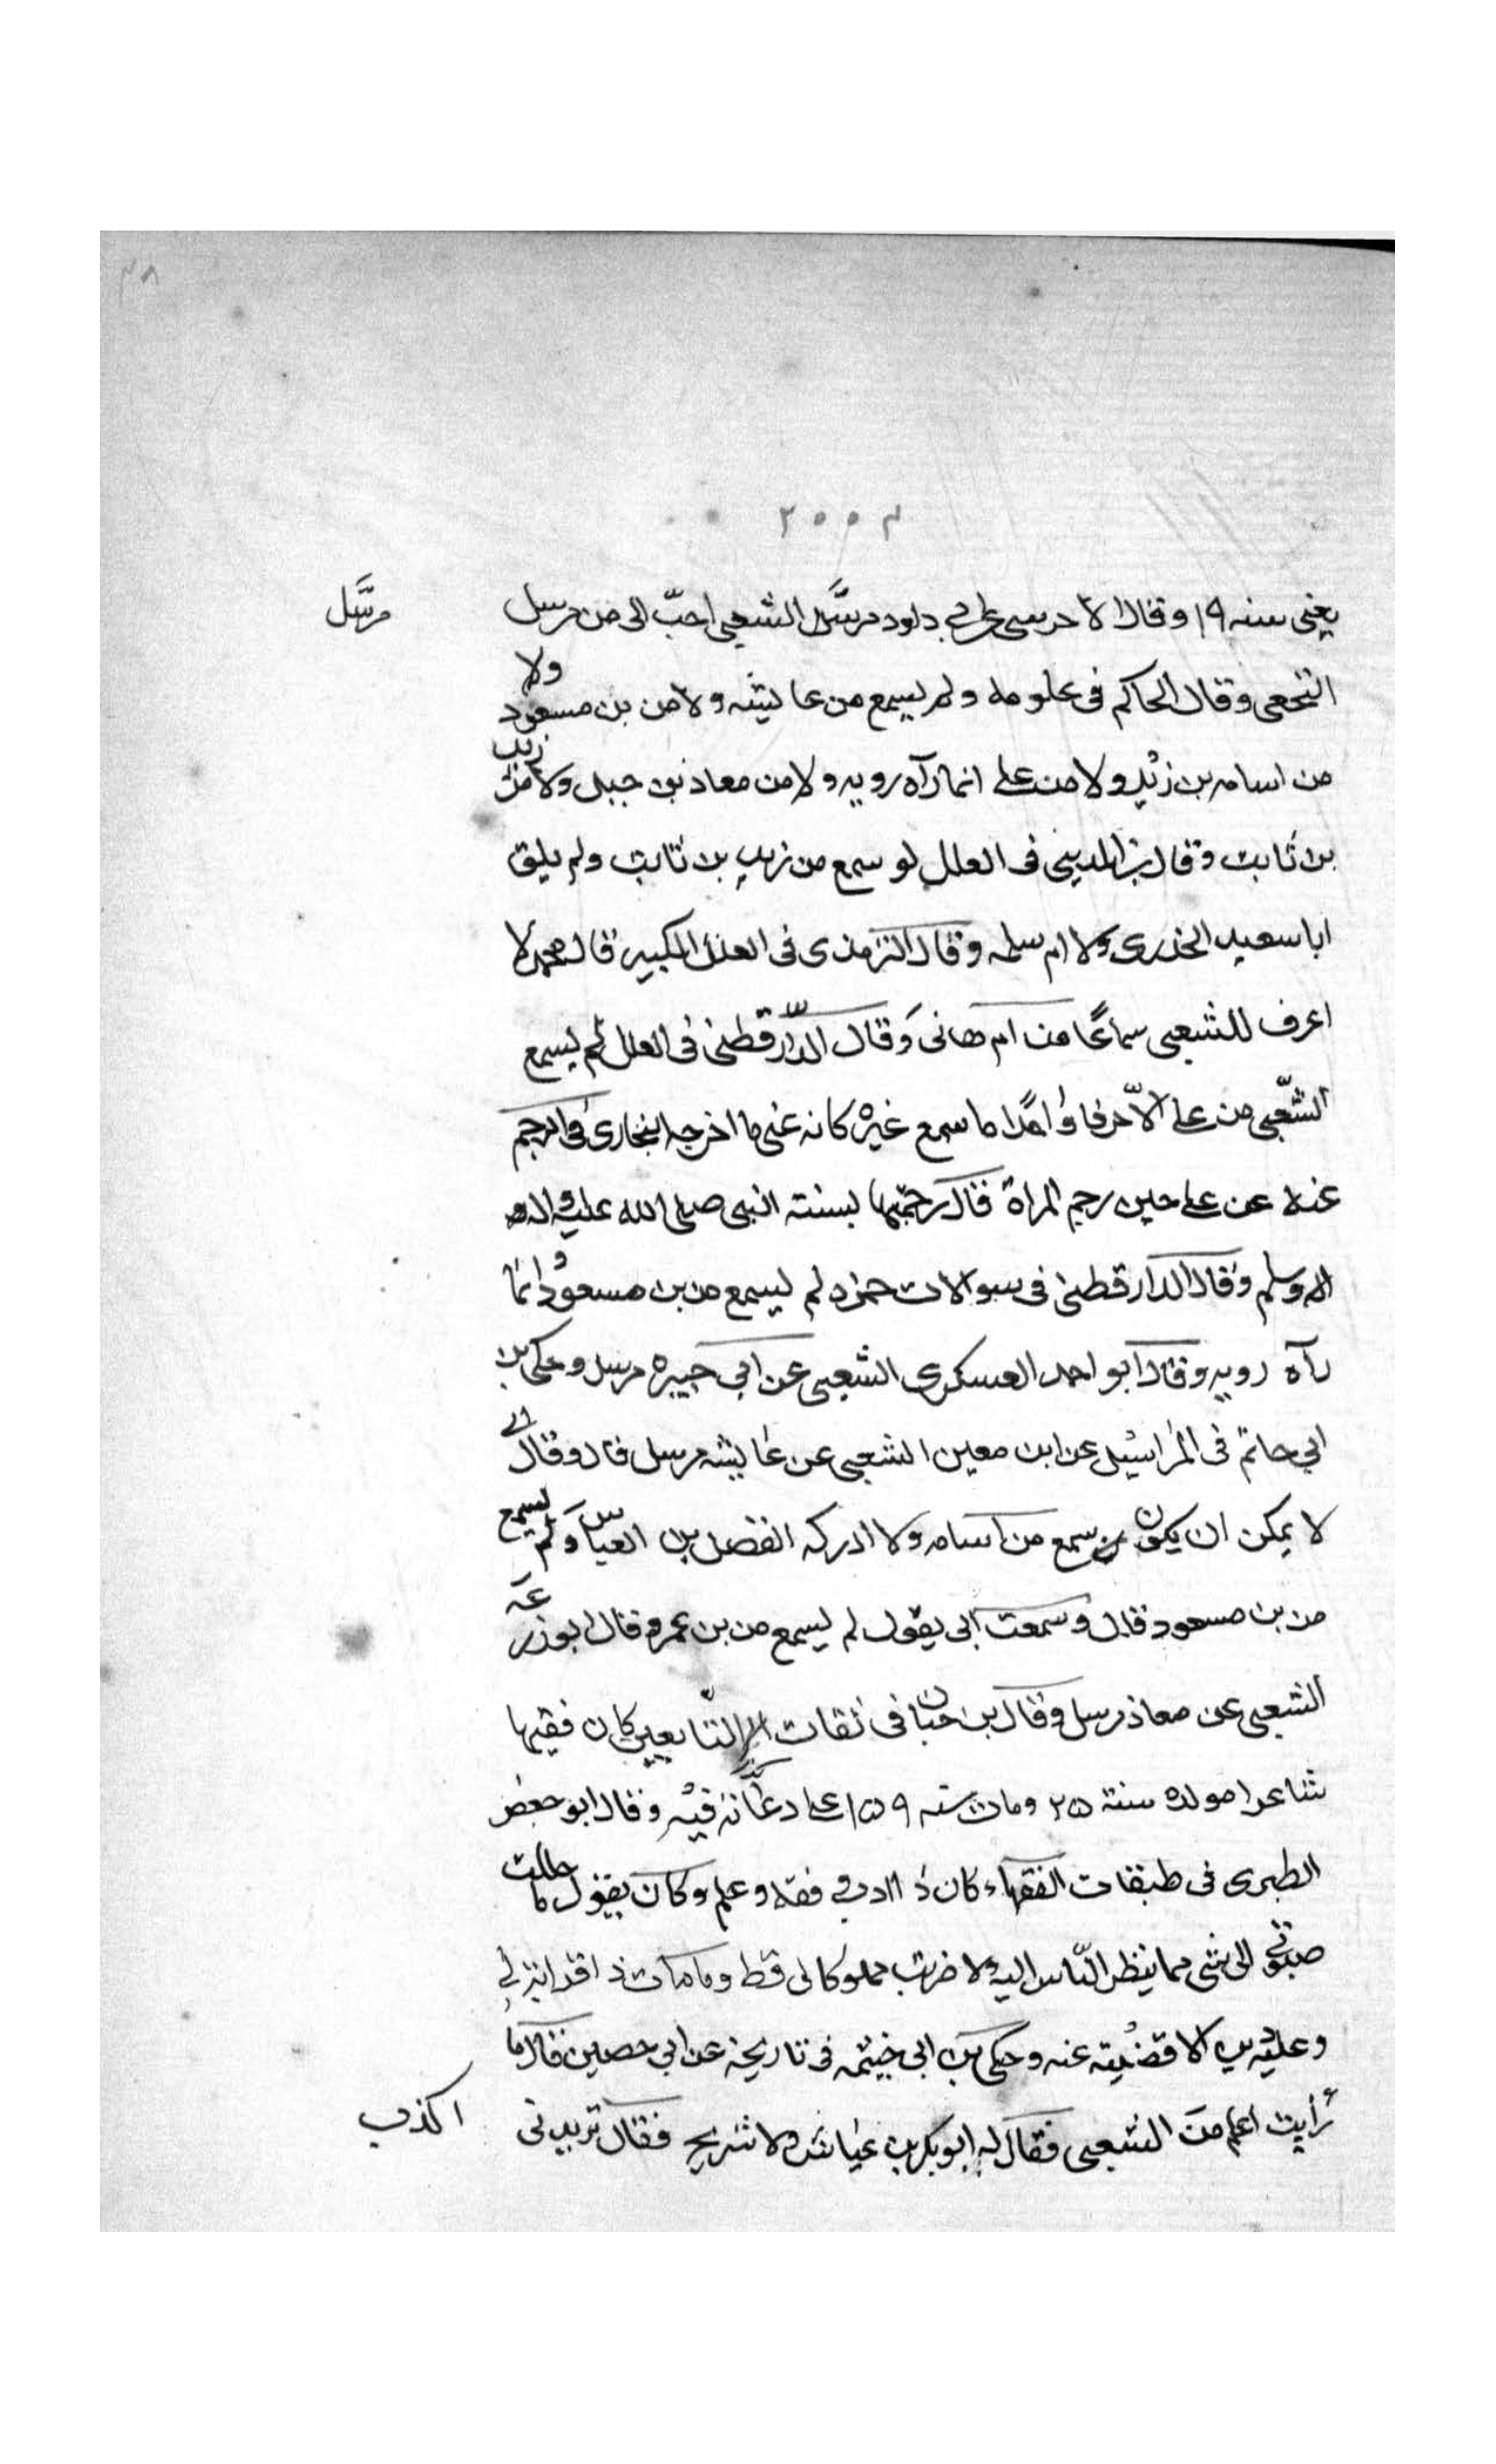 ٢٠٠٣
يعنى سنه ١٩ وقال الاجرى عن ابي داود مرسل الشعبي احبّ الى من مرسل مرسَّل
النخعى وقال الحاكم فى علومه ولم يسمع من عايشه ولا من بن مسعود ولا
من اسامه بن زيد ولا من على انما رآه رويه ولا من معاذ بن جبل ولا من زيد
بن ثابت وقال بن المدينى فى العلل لو سمع من زيد بن ثابت ولم يلق
ابا سعيد الخدرى ولا ام سلمه وقال الترمذى فى العلل الكبير قال محمد لا
اعرف للشعبى سماعًا من ام هانى وقال الدّارقطنى فى العلل لم يسمع
الشّعبى من على الاّ حرفا واحدًا ما سمع غيره كانه عنى ما اخرجه البخارى فى الرجم
عنه عن على حين رجم المراة قال رجمتها بسنته النبى صلى الله عليه واله
اله وسلم وقال الدارقطنى فى سوالات حمزه لم يسمع من بن مسعود وانما
رآه رويه وقال ابو احمد العسكرى الشعبى عن ابي جبيره مرسل وحكى بن
ابي حاتم فى المراسيل عن ابن معين الشعبى عن عايشه مرسل قال وقال ابي
لا يمكن ان يكون سمع من اسامه ولا ادركه الفضل بن العباس ولم يسمع
من بن مسعود قال وسمعت ابى يقول لم يسمع من بن عمر وقال ابو زرعة
الشعبى عن معاذ مرسل وقال بن حبان فى ثقات التّابعين كان فقيها
شاعرا مولده سنة ٢٥ ومات سنه ١٥٩ على دعابة فيه وقال ابو جعفر
الطبرى فى طبقات الفقهاء كان ذا ادب وفقه وعلم وكان يقول ما حللت
حبوتي الى شى مما ينظر النّاس اليه ولا ضربت مملوكا لى قط وما مات ذ اقرابة لي
وعليه دين الا قضيته عنه وحكى بن ابى خيثمه فى تاريخه عن ابي حصين قال ما
رأيت اعلم من الشعبى فقال له ابو بكر بن عياش ولا شريح فقال تريدنى اكذب